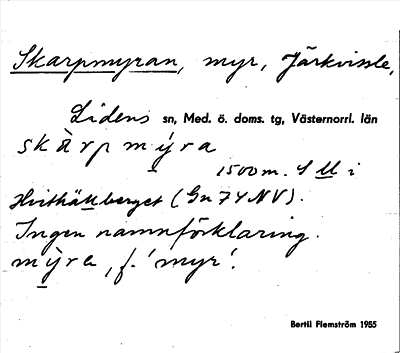 Skarpmyran, myr, Järkvissle,
Lidens sn, Med. ö. doms. tg, Västernorrl. län
skàrpmýra
1500 m. S M i
Hvithällberget (Gn 74 NV).
Ingen namnförklaring.
mýra, f. 'myr'.
Bertil Flemström 1955